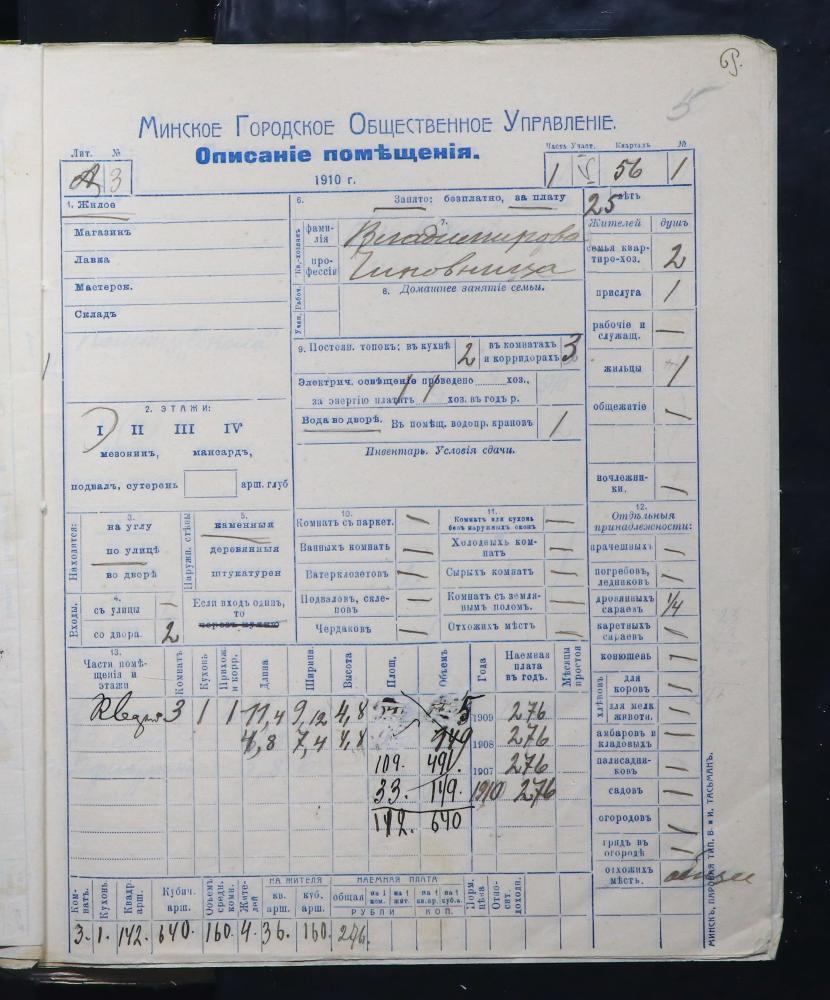 5
Минское Городское Общественное Управленіе.
Описаніе помѣщенія.
1910 г.
Лит. №
3
Часть Участ. Кварталъ №
1 56 1
1. Жилое
Магазинъ
Лавка
Мастерск.
Складъ
2. ЭТАЖИ:
I II III IV
мезонинъ, мансардъ,
подвалъ, сутерень арш. глуб
Находится:
3.
на углу
по улицѣ
во дворѣ
Наружн. стѣны
5.
каменныя
деревянныя
штукатурен
Входы.
4.
съ улицы —
со двора. 2
Если входъ одинъ,
то
6. Занято: безплатно, за плату 25 лѣтъ
Кв.-хозяинъ
7.
фами-
лія Владимирова
про-
фессія Чиновница
Учен. Рабоч.
8. Домашнее занятіе семьи.
9. Постоян. топокъ: въ кухнѣ 2 въ комнатахъ
и корридорахъ 3
Электрич. освѣщеніе проведено хоз.,
за энергію платитъ хоз. въ годъ р.
Вода во дворѣ. Въ помѣщ. водопр. крановъ 1
Инвентарь. Условія сдачи.
10.
Комнатъ съ паркет. —
Ванныхъ комнатъ —
Ватерклозетовъ —
Подваловъ, скле-
повъ —
Чердаковъ —
11.
Комнатъ или кухонь
безъ наружныхъ оконъ —
Холодныхъ ком-
натъ —
Сырыхъ комнатъ —
Комнатъ съ земля-
нымъ поломъ. —
Отхожихъ мѣстъ —
Жителей душъ
семья квар-
тиро-хоз. 2
прислуга 1
рабочіе и
служащ. —
жильцы 1
общежитіе —
ночлежни-
ки. —
12.
Отдѣльныя
принадлежности:
прачешныхъ —
погребовъ,
ледниковъ —
дровяныхъ
сараевъ 1/4
каретныхъ
сараевъ —
конюшень —
хлѣвовъ
для
коровъ —
для мелк
животн. —
амбаровъ и
кладовыхъ —
палисадни-
ковъ —
садовъ —
огородовъ —
грядъ въ
огородѣ —
отхожихъ
мѣстъ. общее
13.
Части помѣ-
щенія и
этажи
Комнатъ Кухонь Прихож. и корр. Длина Ширина Высота Площ. Объемъ Года
Наемная
плата
въ годъ.
Мѣсяцы простоя
3 1 1 11,4 9,12 4,8 1909 276
4,8 7,4 4,8 149 1908 276
109. 491. 1907 276
33. 149. 1910 276
142. 640
Ком-
натъ. Кухонь Квадр.
арш. Кубич.
арш. Объемъ
средн.
комн. Жите-
лей
НА ЖИТЕЛЯ
кв.
арш. куб.
арш.
НАЕМНАЯ ПЛАТА
общая на 1
ком. на 1
жит. на 1
кв.ар. на 1
куб.а.
РУБЛИ КОП.
Норм.
цѣна Отно-
сит.
доходн.
3. 1. 142. 640. 160. 4. 36. 160. 276.
МИНСКЪ, ПАРОВАЯ ТИП. В. и И. ТАСЬМАНЪ.